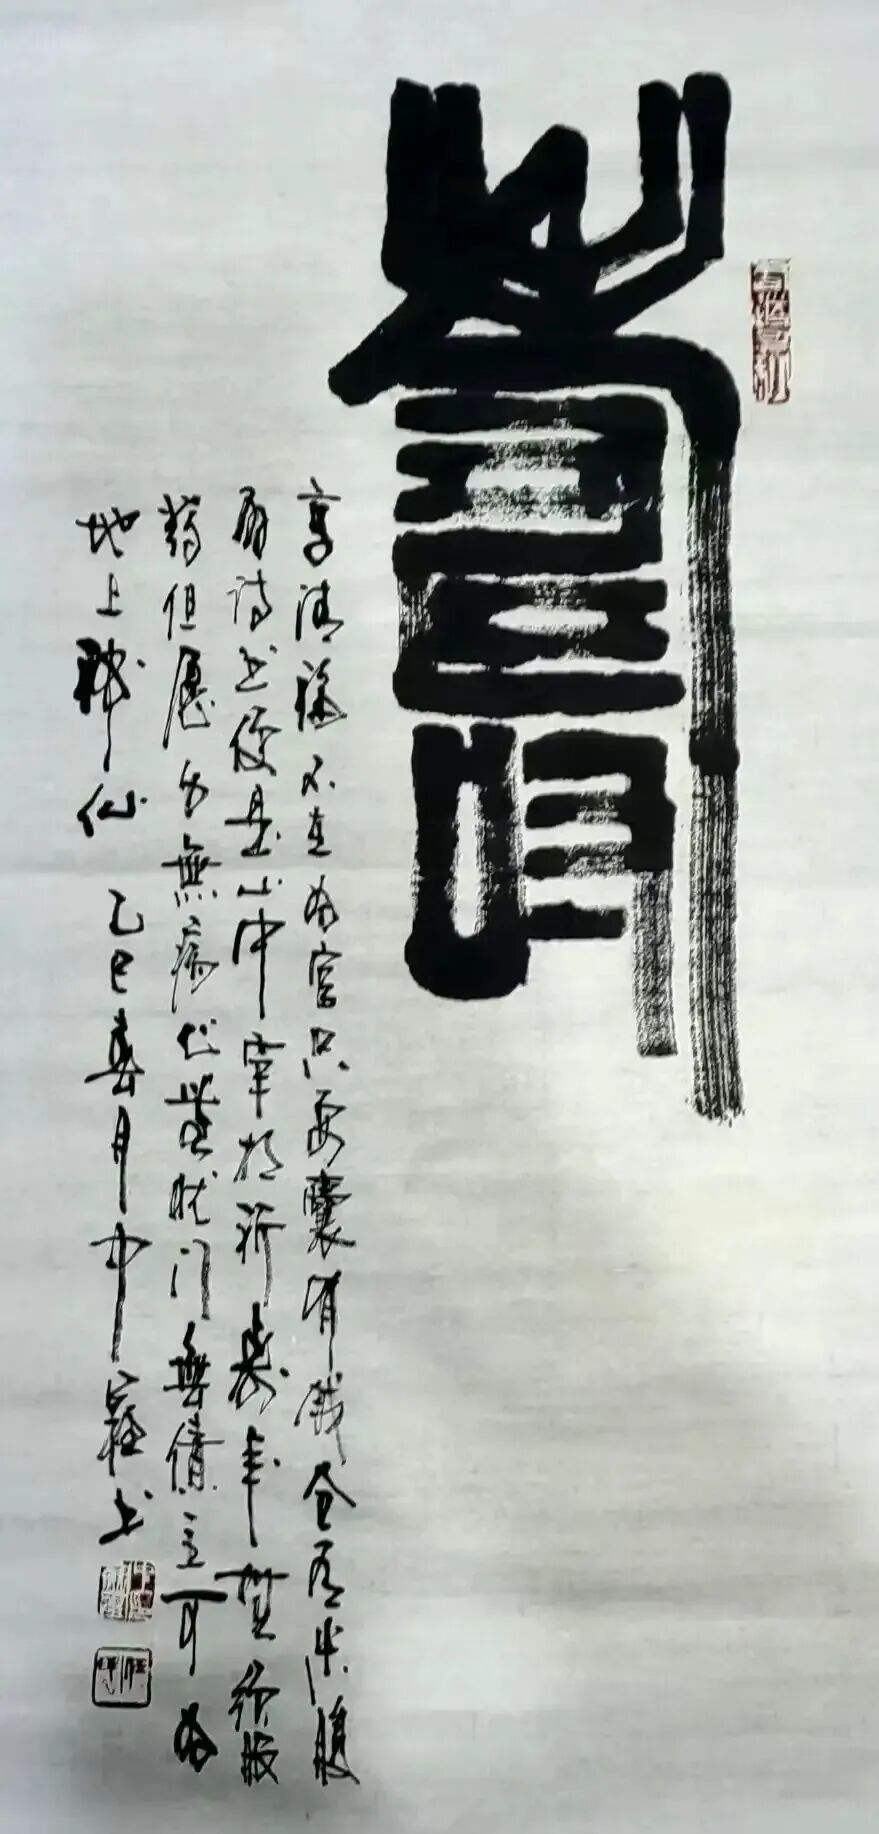 壽
享清福不在为官只要囊有錢仓有米腹
有诗书便是山中宰相祈寿年無须服
药但愿身無病心無忧门無债主可为
地上神仙 乙巳春月中书